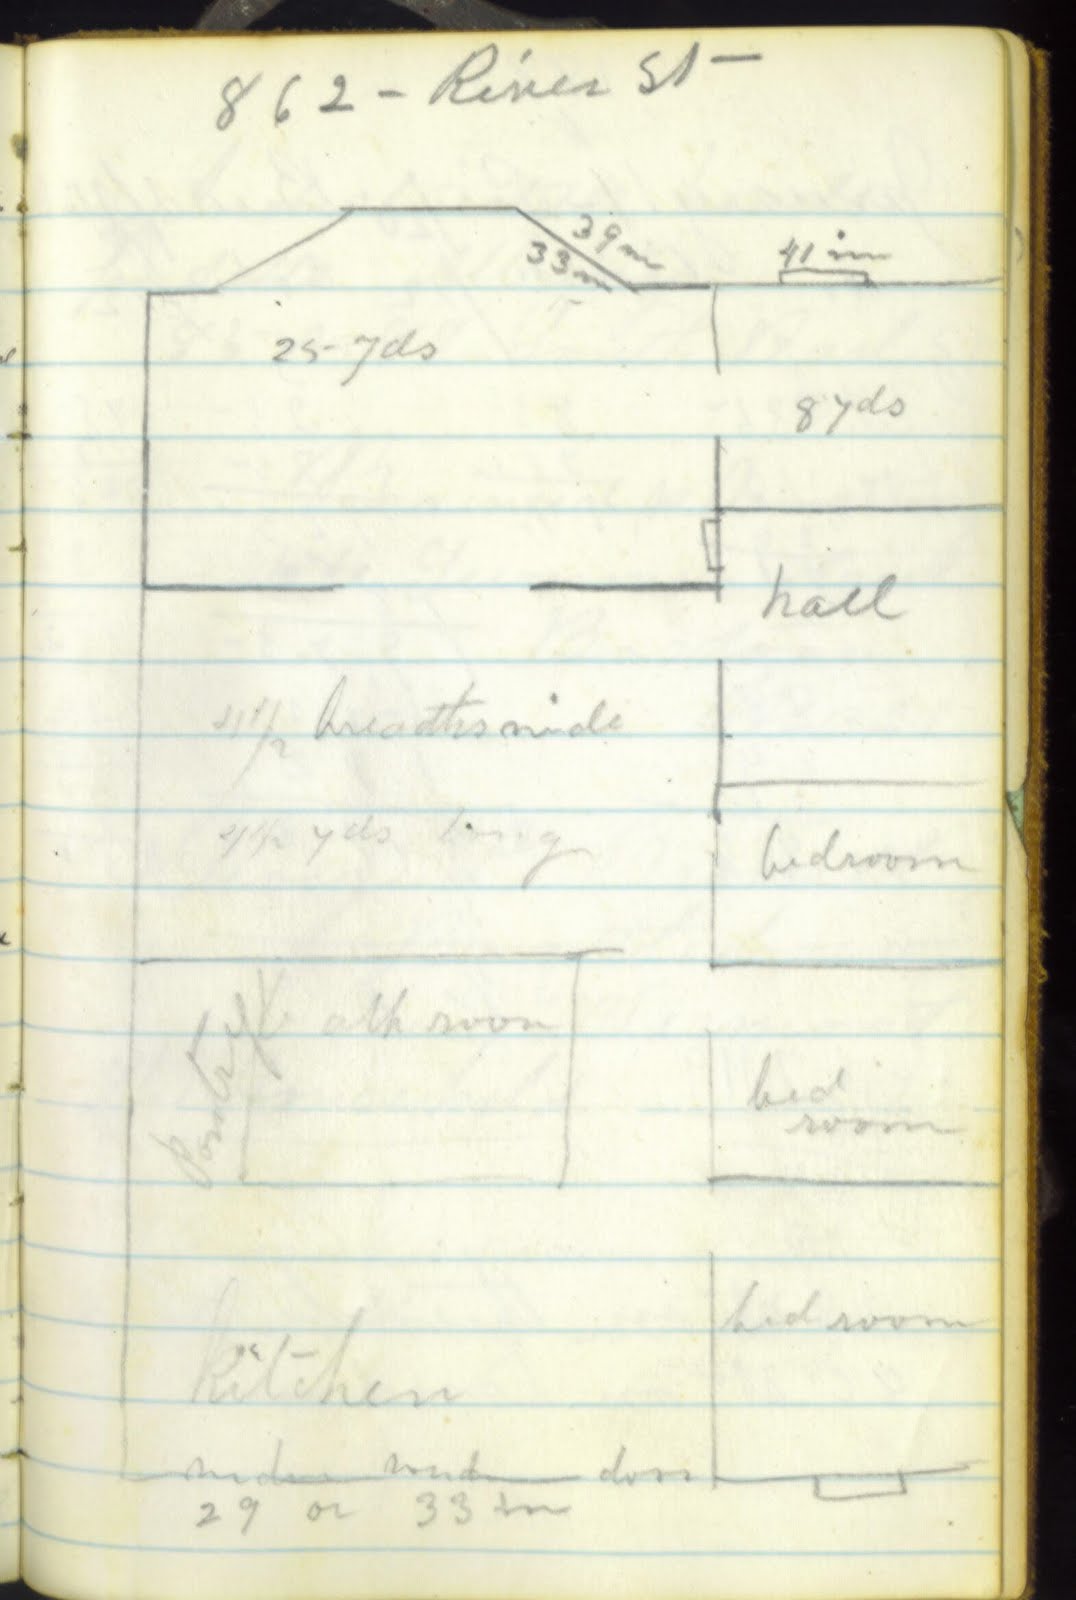 862 - River St -
39 in
33 in
41 in
25 yds
8 yds
hall
4 1/2 breadths wide
4 1/2 yds long
bedroom
Pantry
bath room
bed
room
bed room
kitchen
window door
29 or 33 in